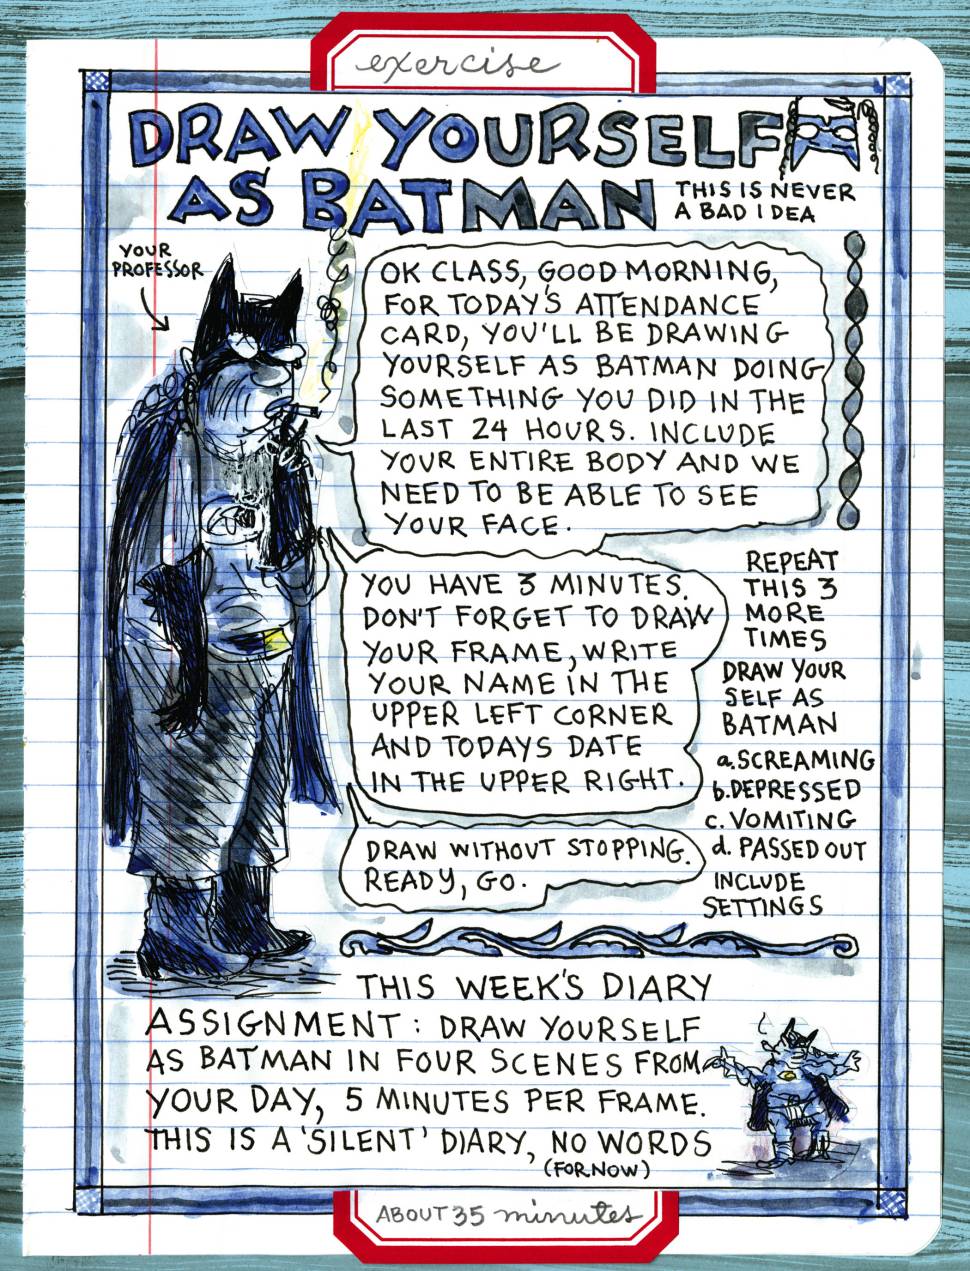 exercise
DRAW YOURSELF
AS BATMAN
THIS IS NEVER
A BAD IDEA
YOUR
PROFESSOR
OK CLASS, GOOD MORNING,
FOR TODAY'S ATTENDANCE
CARD, YOU'LL BE DRAWING
YOURSELF AS BATMAN DOING
SOMETHING YOU DID IN THE
LAST 24 HOURS. INCLUDE
YOUR ENTIRE BODY AND WE
NEED TO BE ABLE TO SEE
YOUR FACE.
YOU HAVE 3 MINUTES.
DON'T FORGET TO DRAW
YOUR FRAME, WRITE
YOUR NAME IN THE
UPPER LEFT CORNER
AND TODAYS DATE
IN THE UPPER RIGHT.
DRAW WITHOUT STOPPING.
READY, GO.
REPEAT
THIS 3
MORE
TIMES
DRAW YOUR
SELF AS
BATMAN
a. SCREAMING
b. DEPRESSED
c. VOMITING
d. PASSED OUT
INCLUDE
SETTINGS
THIS WEEK'S DIARY
ASSIGNMENT: DRAW YOURSELF
AS BATMAN IN FOUR SCENES FROM
YOUR DAY, 5 MINUTES PER FRAME.
THIS IS A 'SILENT' DIARY, NO WORDS
(FOR NOW)
ABOUT 35 minutes